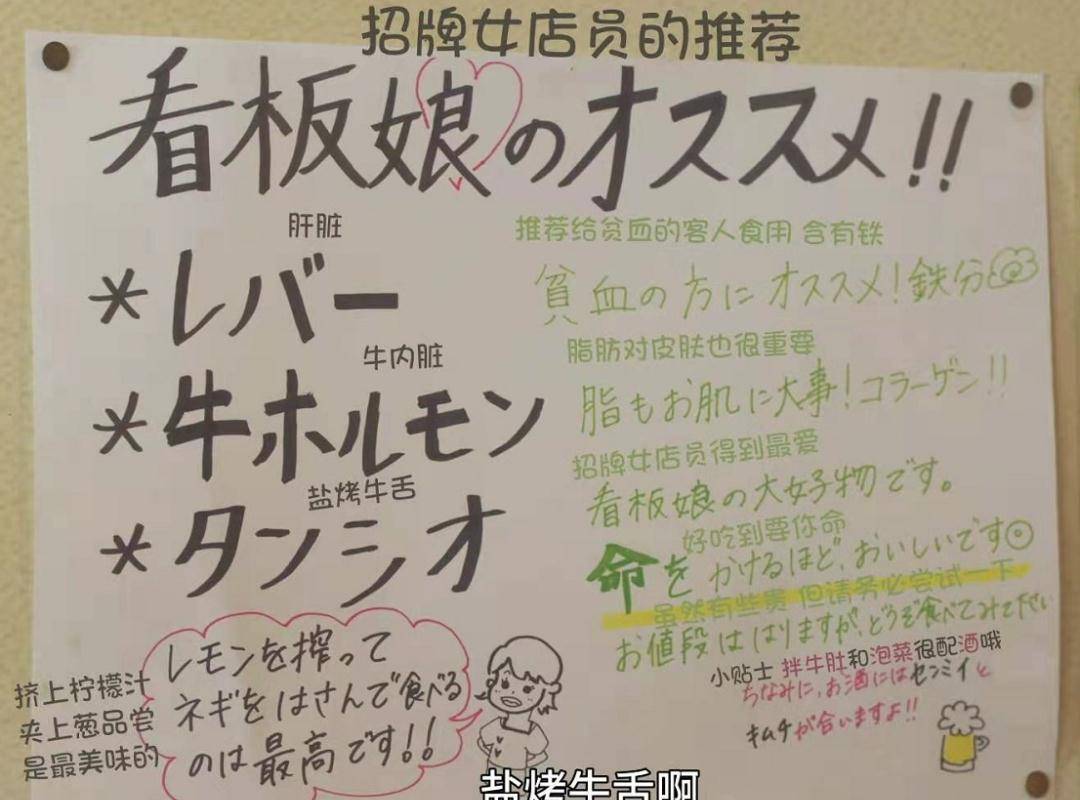 招牌女店员的推荐
看板娘のオススメ!!
肝脏
*レバー
推荐给贫血的客人食用 含有铁
貧血の方にオススメ!鉄分
牛内脏
*牛ホルモン
脂肪对皮肤也很重要
脂もお肌に大事!コラーゲン!!
盐烤牛舌
*タンシオ
招牌女店员得到最爱
看板娘の大好物です。
好吃到要你命
命をかけるほど、おいしいです
虽然有些贵 但请务必尝试一下
お値段ははりますが、どうぞ食べてみて下さい
小贴士 拌牛肚和泡菜很配酒哦
ちなみに、お酒にはセンミイと
キムチが合いますよ!!
挤上柠檬汁
夹上葱品尝
是最美味的
レモンを搾って
ネギをはさんで食べる
のは最高です!!
盐烤牛舌啊